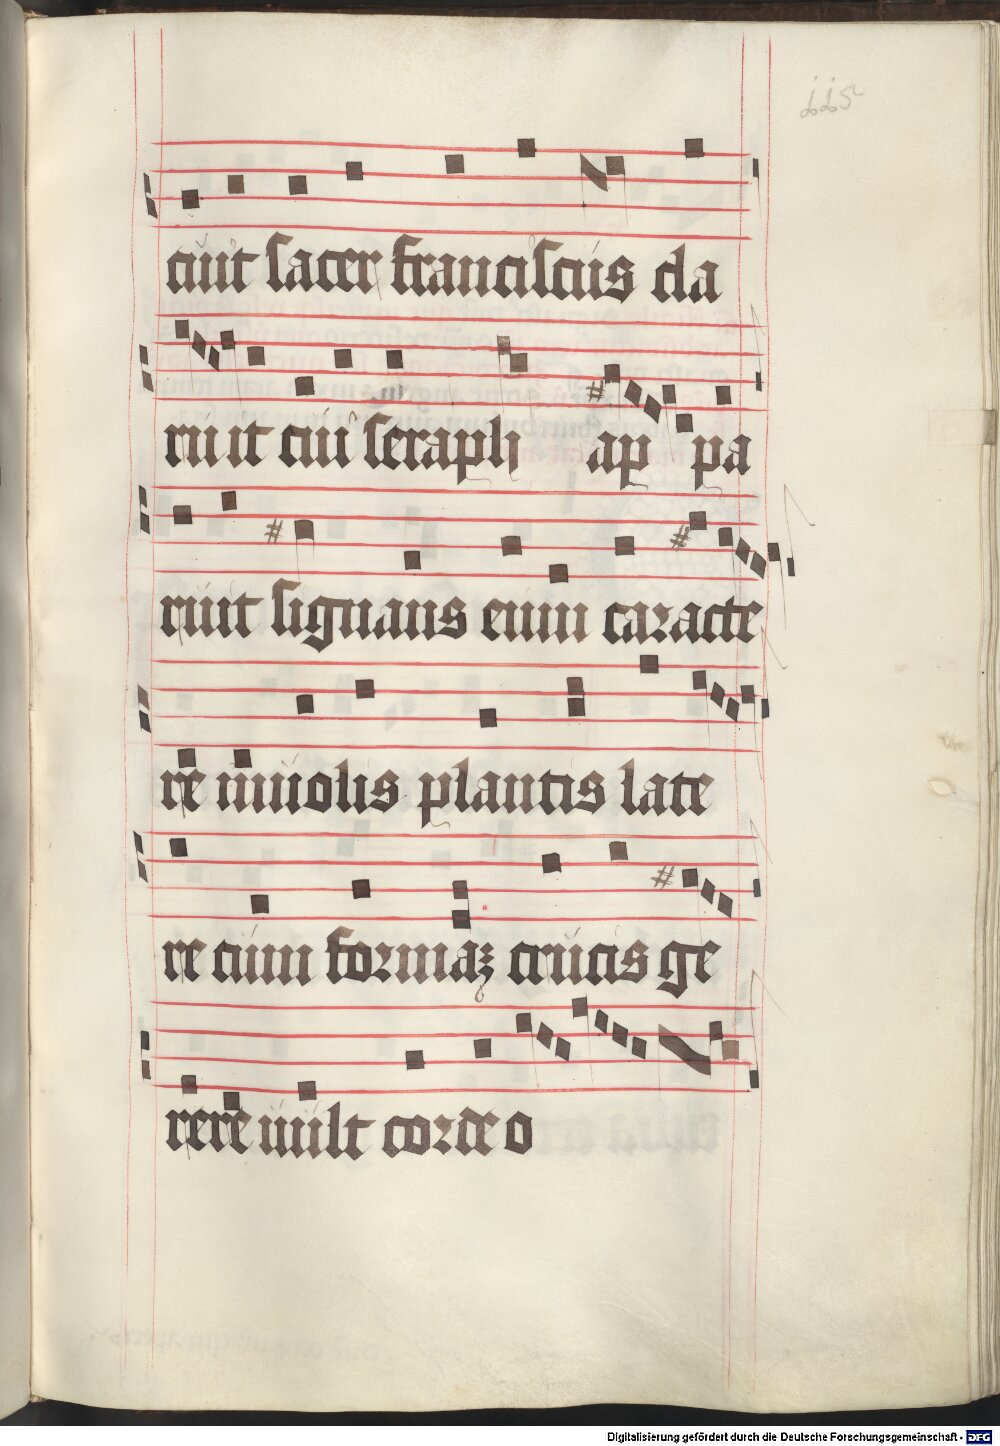 115
ciuit sacer franciscus cla
ruit cui seraph ap pa
ruit signans eum caracte
re in uolis plantis late
re cum formaꝫ crucis ge
rere uult corde o
Digitalisierung gefördert durch die Deutsche Forschungsgemeinschaft - DFG